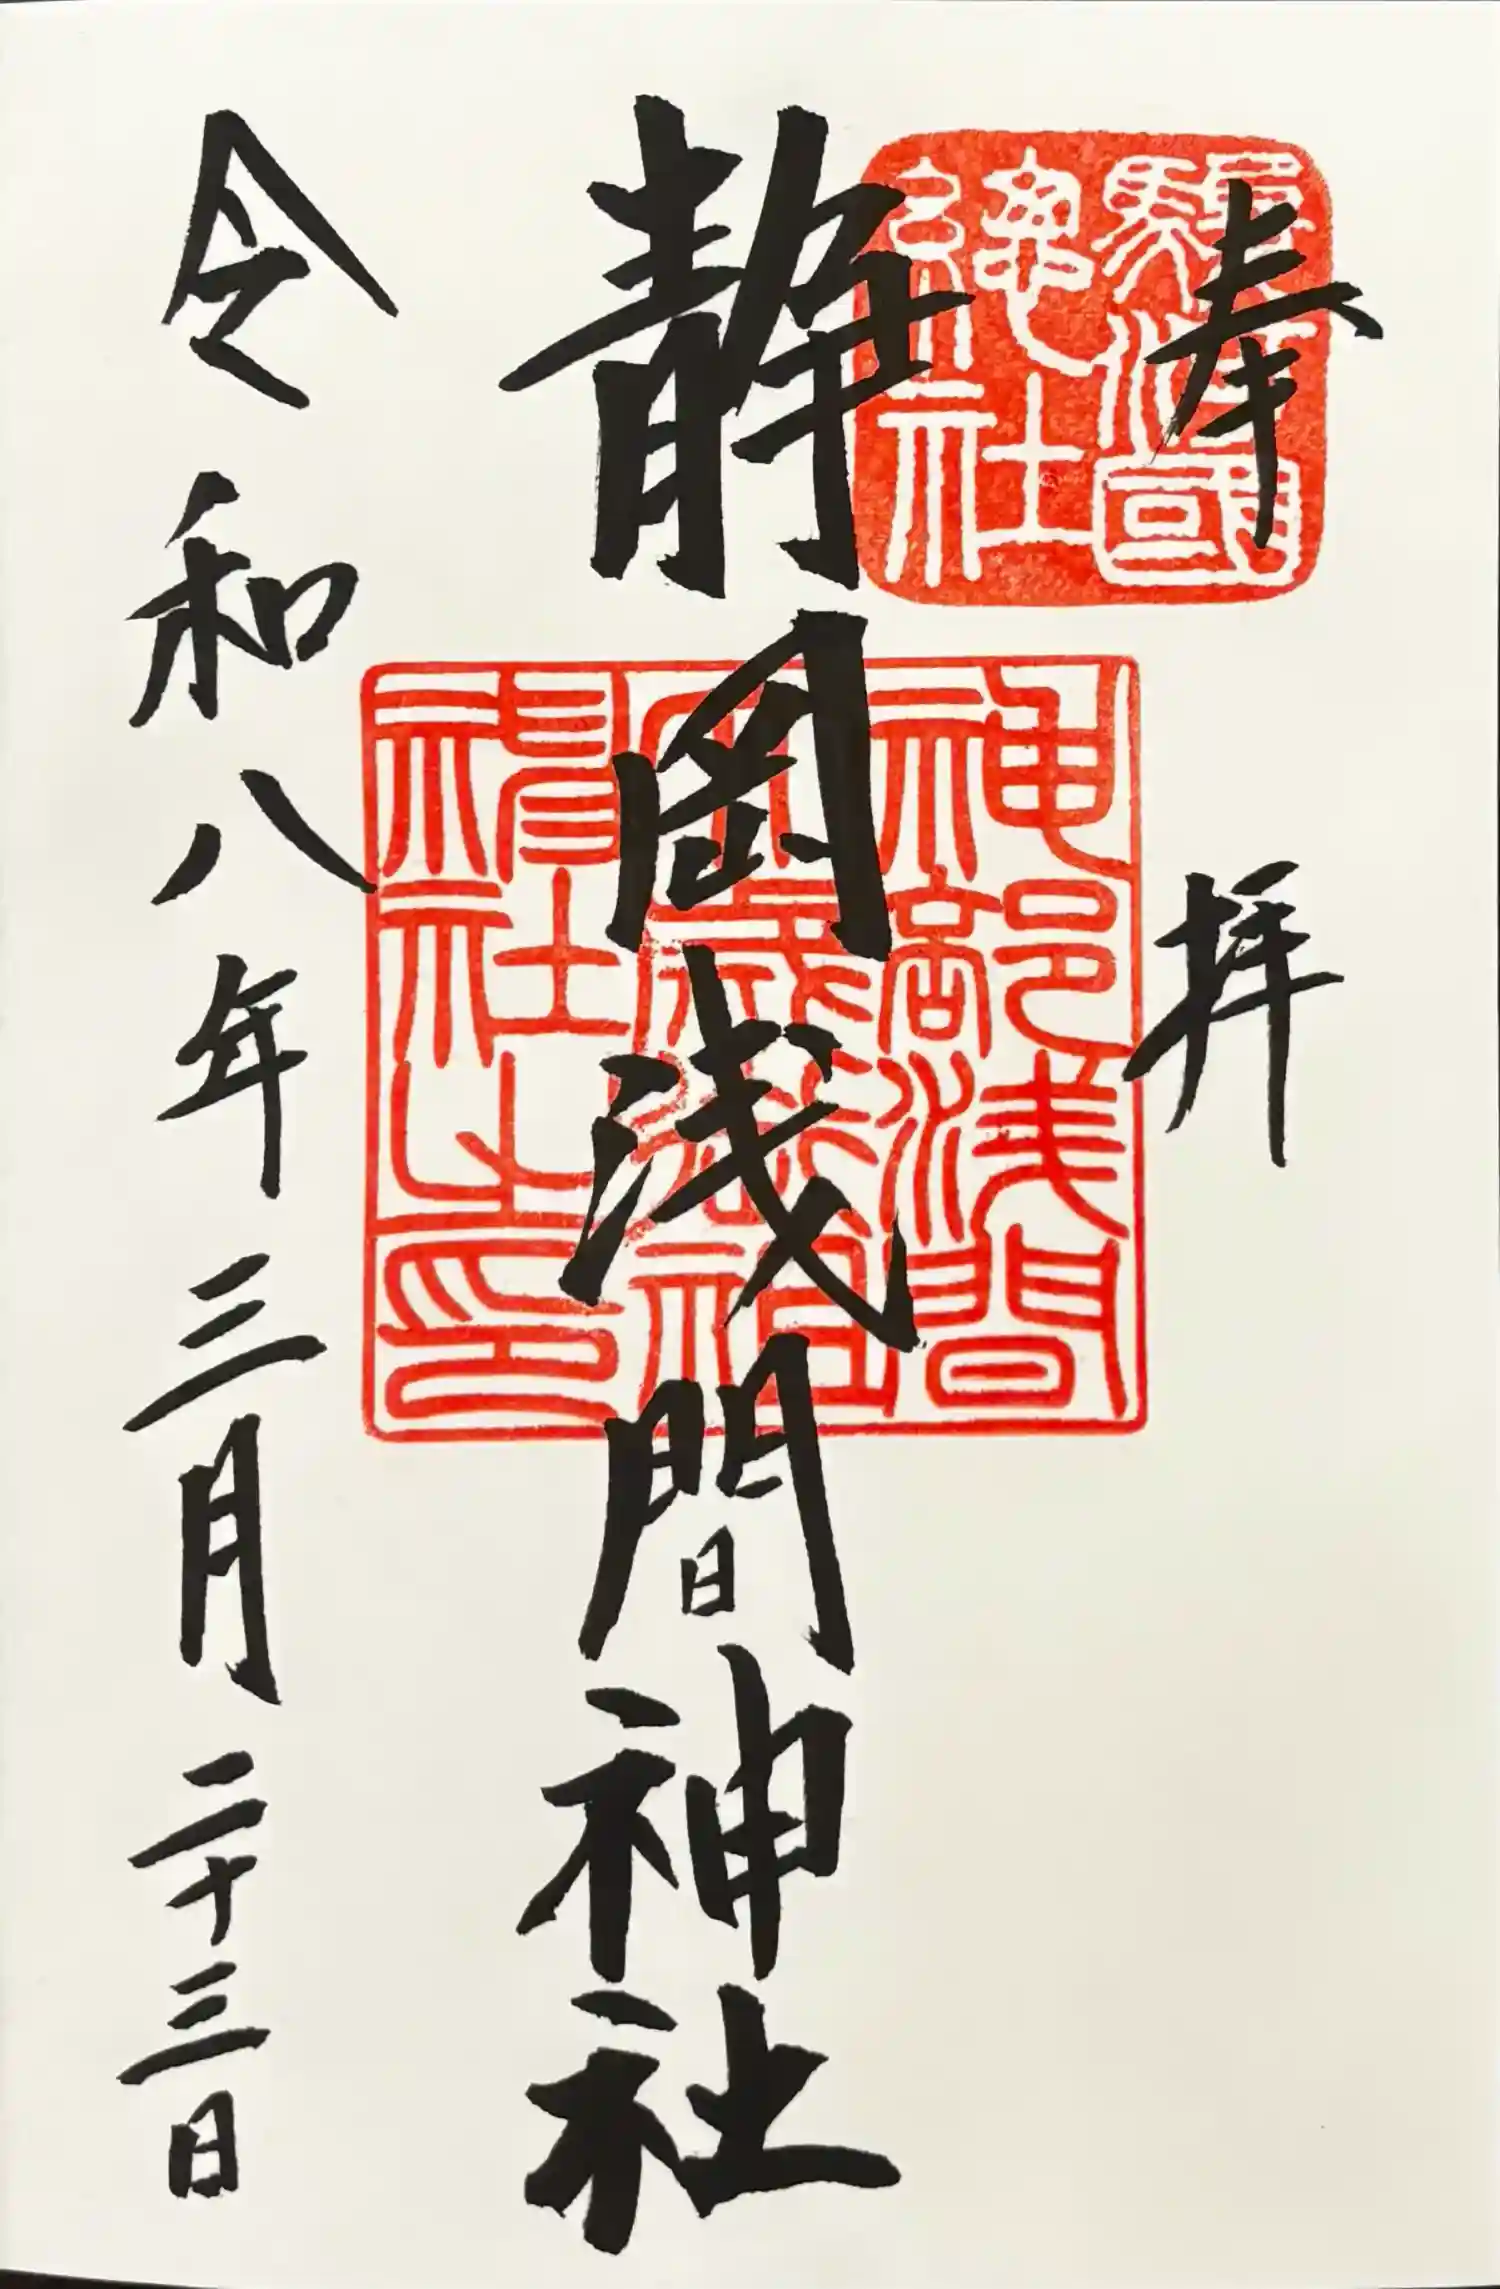 奉拝
駿河國總社
静岡浅間神社
神部浅間大歳御祖神社之印
令和八年三月二十三日